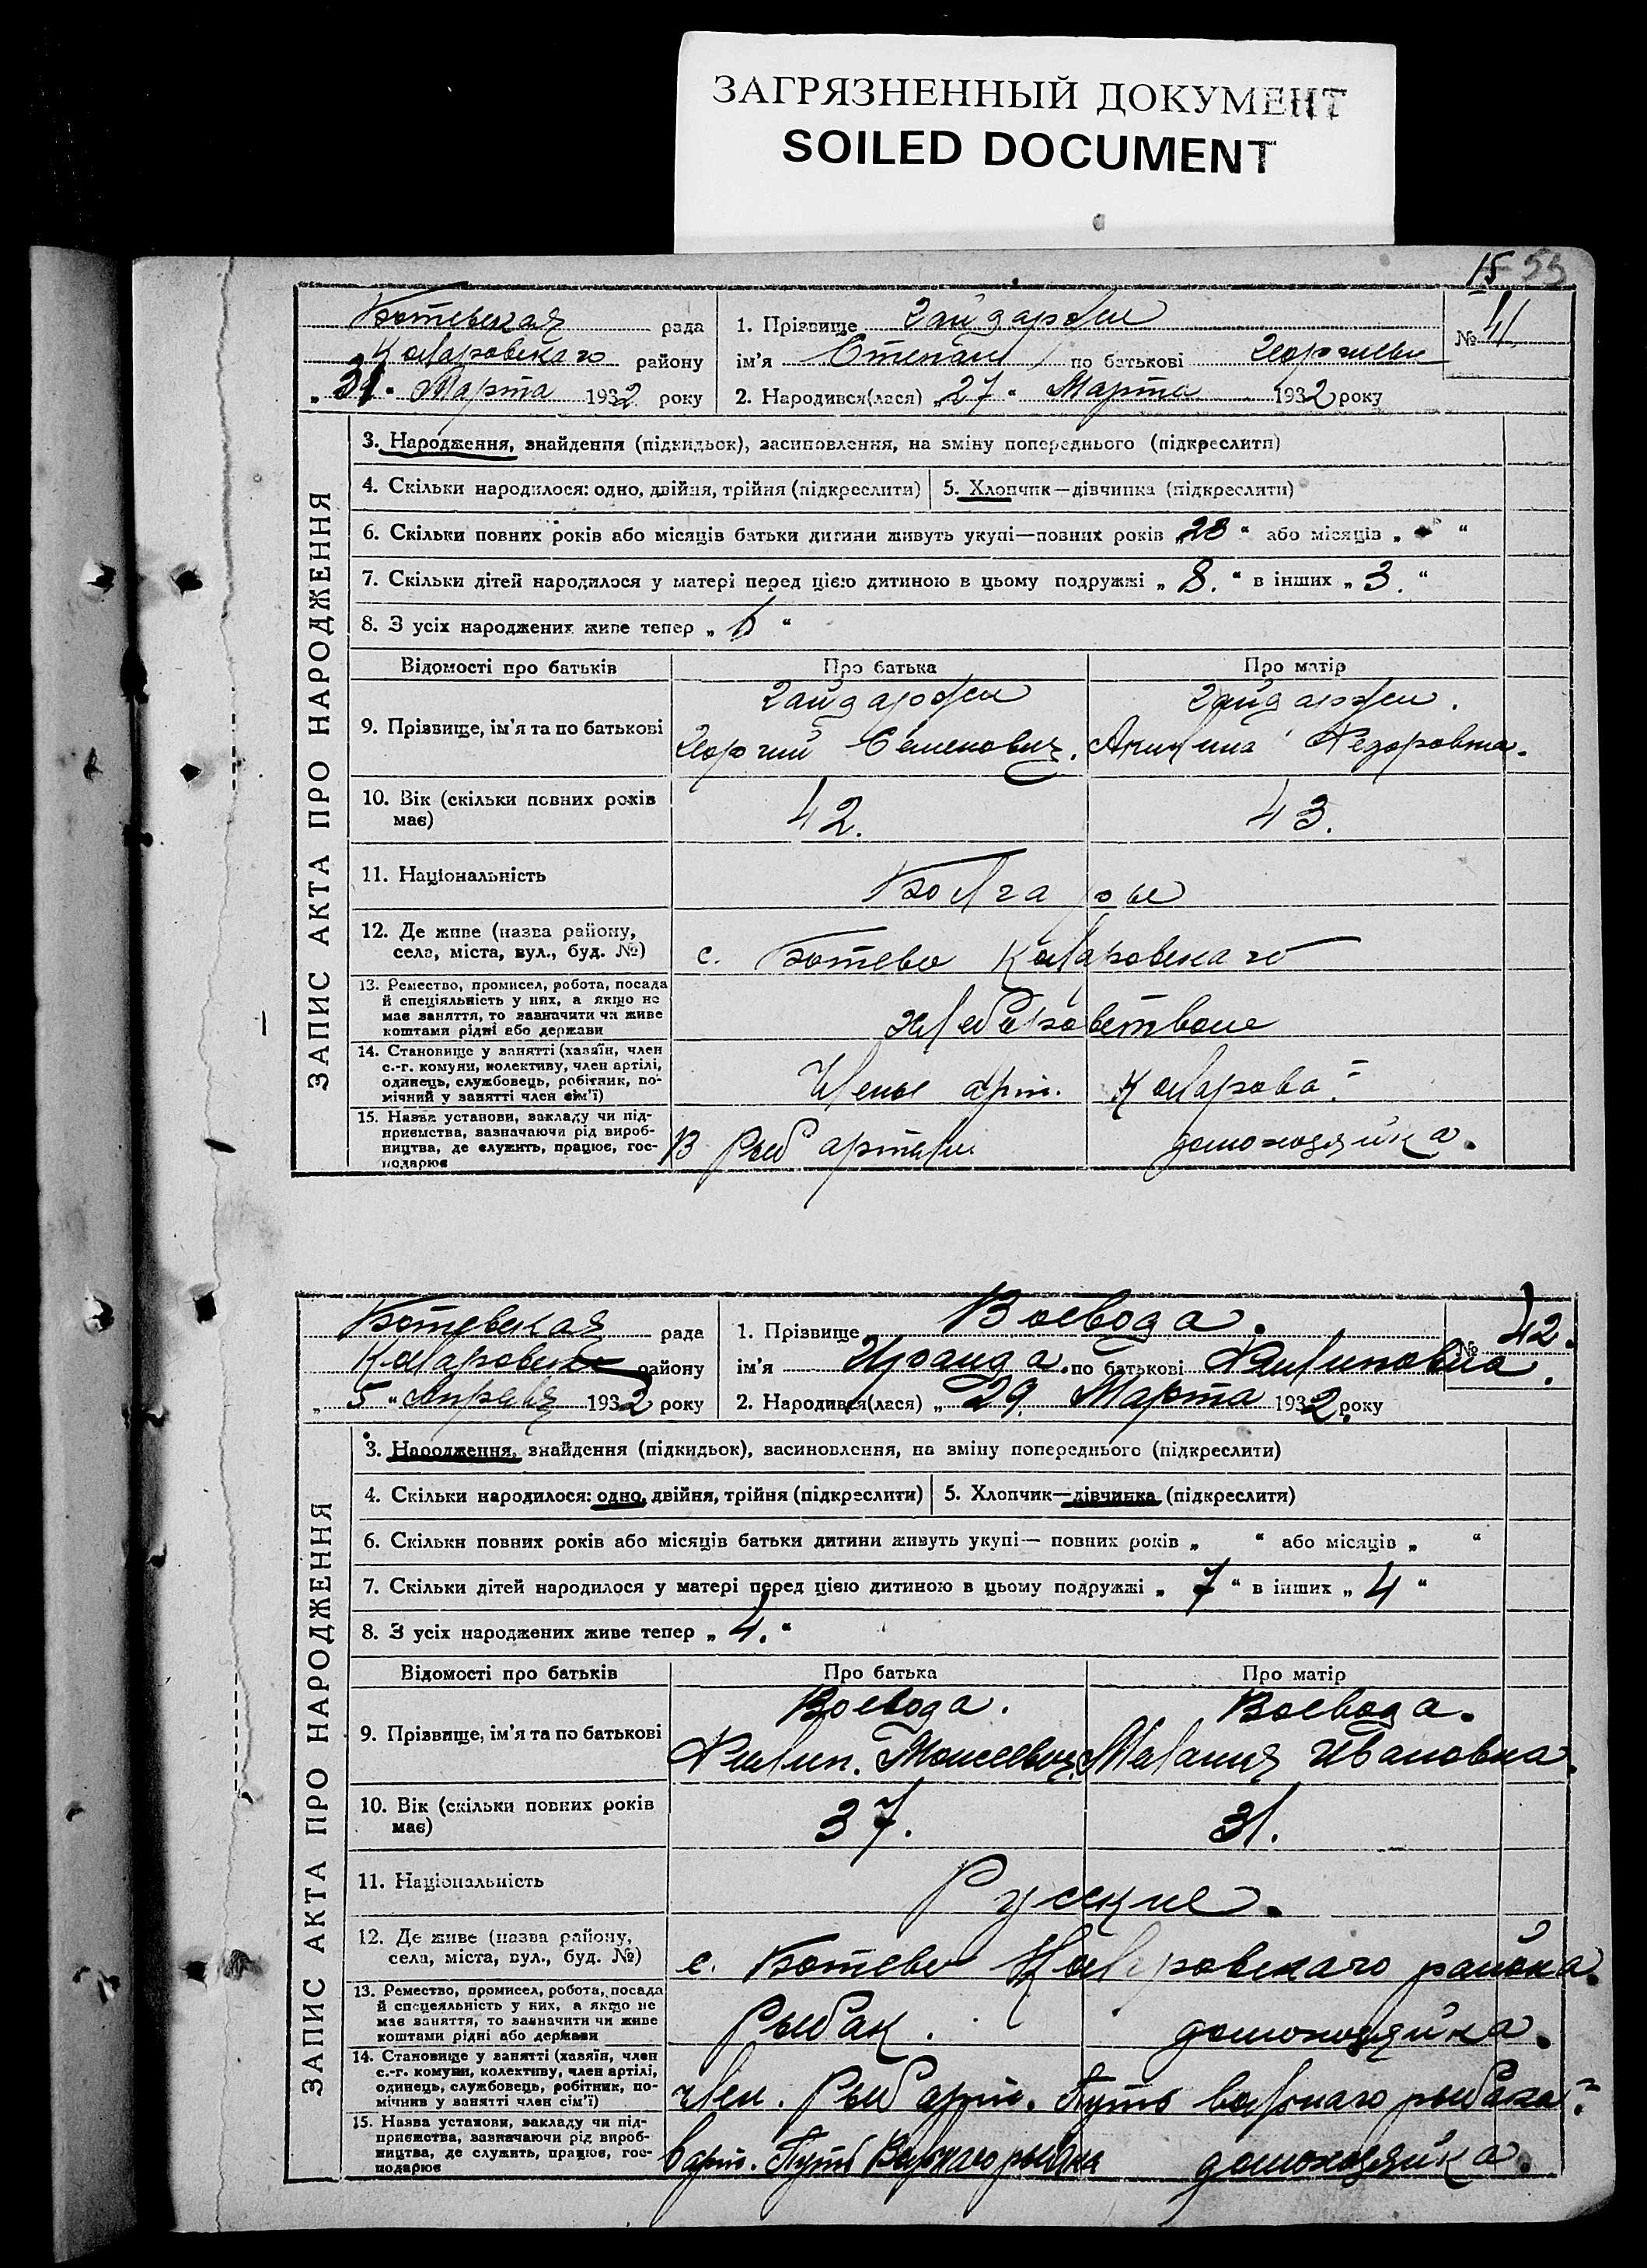 ЗАГРЯЗНЕННЫЙ ДОКУМЕНТ
SOILED DOCUMENT
15 55
Ботевская рада
Коларовскаго району
„31“ Марта 1932 року
1. Прізвище Гайдаржи
ім'я Степан по батькові Георгиеви
2. Народився(лася) „27“ Марта 1932 року
№ 41
ЗАПИС АКТА ПРО НАРОДЖЕННЯ
3. Народження, знайдення (підкидьок), засиновлення, на зміну попереднього (підкреслити)
4. Скільки народилося: одно, двійня, трійня (підкреслити)
5. Хлопчик—дівчинка (підкреслити)
6. Скільки повних років або місяців батьки дитини живуть укупі—повних років „28“ або місяців „ “
7. Скільки дітей народилося у матері перед цією дитиною в цьому подружжі „8.“ в інших „3.“
8. З усіх народжених живе тепер „6“
Відомості про батьків Про батька Про матір
9. Прізвище, ім'я та по батькові
Гайдаржи Гайдаржи.
Георгий Семенович. Акилина Федоровна.
10. Вік (скільки повних років
має)
42. 43.
11. Національність Болгары
12. Де живе (назва району,
села, міста, вул., буд. №)
с. Ботево Коларовскаго
13. Ремество, промисел, робота, посада
й спеціяльність у них, а якщо не
має заняття, то зазначити чи живе
коштами рідні або держави
хлебопашество
14. Становище у занятті (хазяїн, член
с.-г. комуни, колективу, член артілі,
одинець, службовець, робітник, по-
мічний у занятті член сім'ї)
Члены арт. Коларова"
15. Назва установи, закладу чи під-
приємства, зазначаючи рід вироб-
ництва, де служить, працює, гос-
подарює
В Рыб артели домохозяйка.
Ботевская рада
Коларовского району
„5“ Апреля 1932 року
1. Прізвище Воевода.
ім'я Ираида. по батькові Филиповна.
2. Народився(лася) „29. Марта 1932. року
№ 42.
ЗАПИС АКТА ПРО НАРОДЖЕННЯ
3. Народження, знайдення (підкидьок), засиновлення, на зміну попереднього (підкреслити)
4. Скільки народилося: одно, двійня, трійня (підкреслити)
5. Хлопчик—дівчинка (підкреслити)
6. Скільки повних років або місяців батьки дитини живуть укупі— повних років „ “ або місяців „ “
7. Скільки дітей народилося у матері перед цією дитиною в цьому подружжі „7“ в інших „4“
8. З усіх народжених живе тепер „4.“
Відомості про батьків Про батька Про матір
9. Прізвище, ім'я та по батькові
Воевода. Воевода.
Филип. Моисеевич. Мелания Ивановна.
10. Вік (скільки повних років
має)
37. 31.
11. Національність Руские.
12. Де живе (назва району,
села, міста, вул., буд. №)
с. Ботево Коларовскаго района.
13. Ремество, промисел, робота, посада
й спецеяльність у них, а якщо не
має заняття, то зазначити чи живе
коштами рідні або держави
Рыбак. домохозяйка.
14. Становище у занятті (хазяїн, член
с.-г. комуни, колективу, член артілі,
одинець, службовець, робітник, по-
мічнив у занятті член сім'ї)
член. Рыб арт. Путь вольнаго рыбака"
15. Назва установи, закладу чи під-
приємства, зазначаючи рід вироб-
ництва, де служить, працює, гос-
подарює
в арт. Путь Вольнаго рыбака домохозяйка.